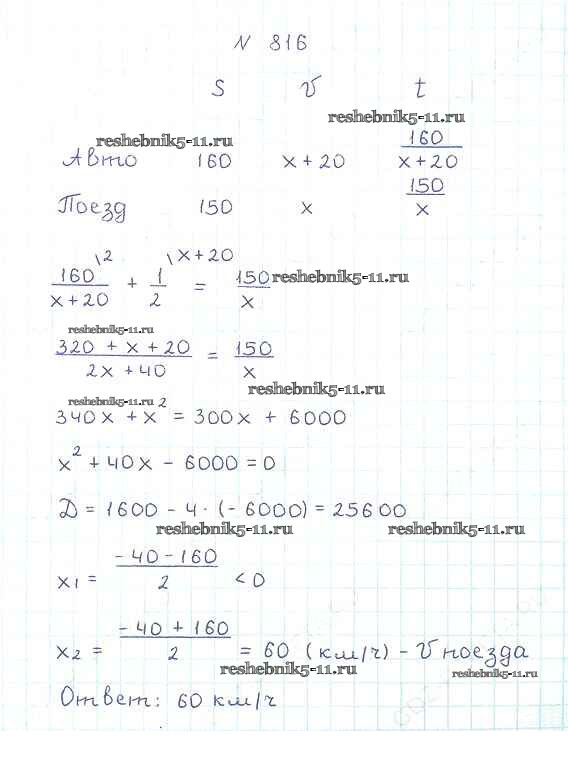 N 816
S V t
reshebnik5-11.ru
reshebnik5-11.ru
Авто 160 x+20 160/(x+20)
Поезд 150 x 150/x
\2 \x+20
160/(x+20) + 1/2 = 150/x
reshebnik5-11.ru
reshebnik5-11.ru
(320 + x + 20)/(2x + 40) = 150/x
reshebnik5-11.ru
reshebnik5-11.ru
340x + x² = 300x + 6000
x² + 40x - 6000 = 0
Д = 1600 - 4 · (-6000) = 25600
reshebnik5-11.ru reshebnik5-11.ru
x₁ = (-40-160)/2 < 0
x₂ = (-40 + 160)/2 = 60 (км/ч) - V поезда
reshebnik5-11.ru reshebnik5-11.ru
Ответ: 60 км/ч